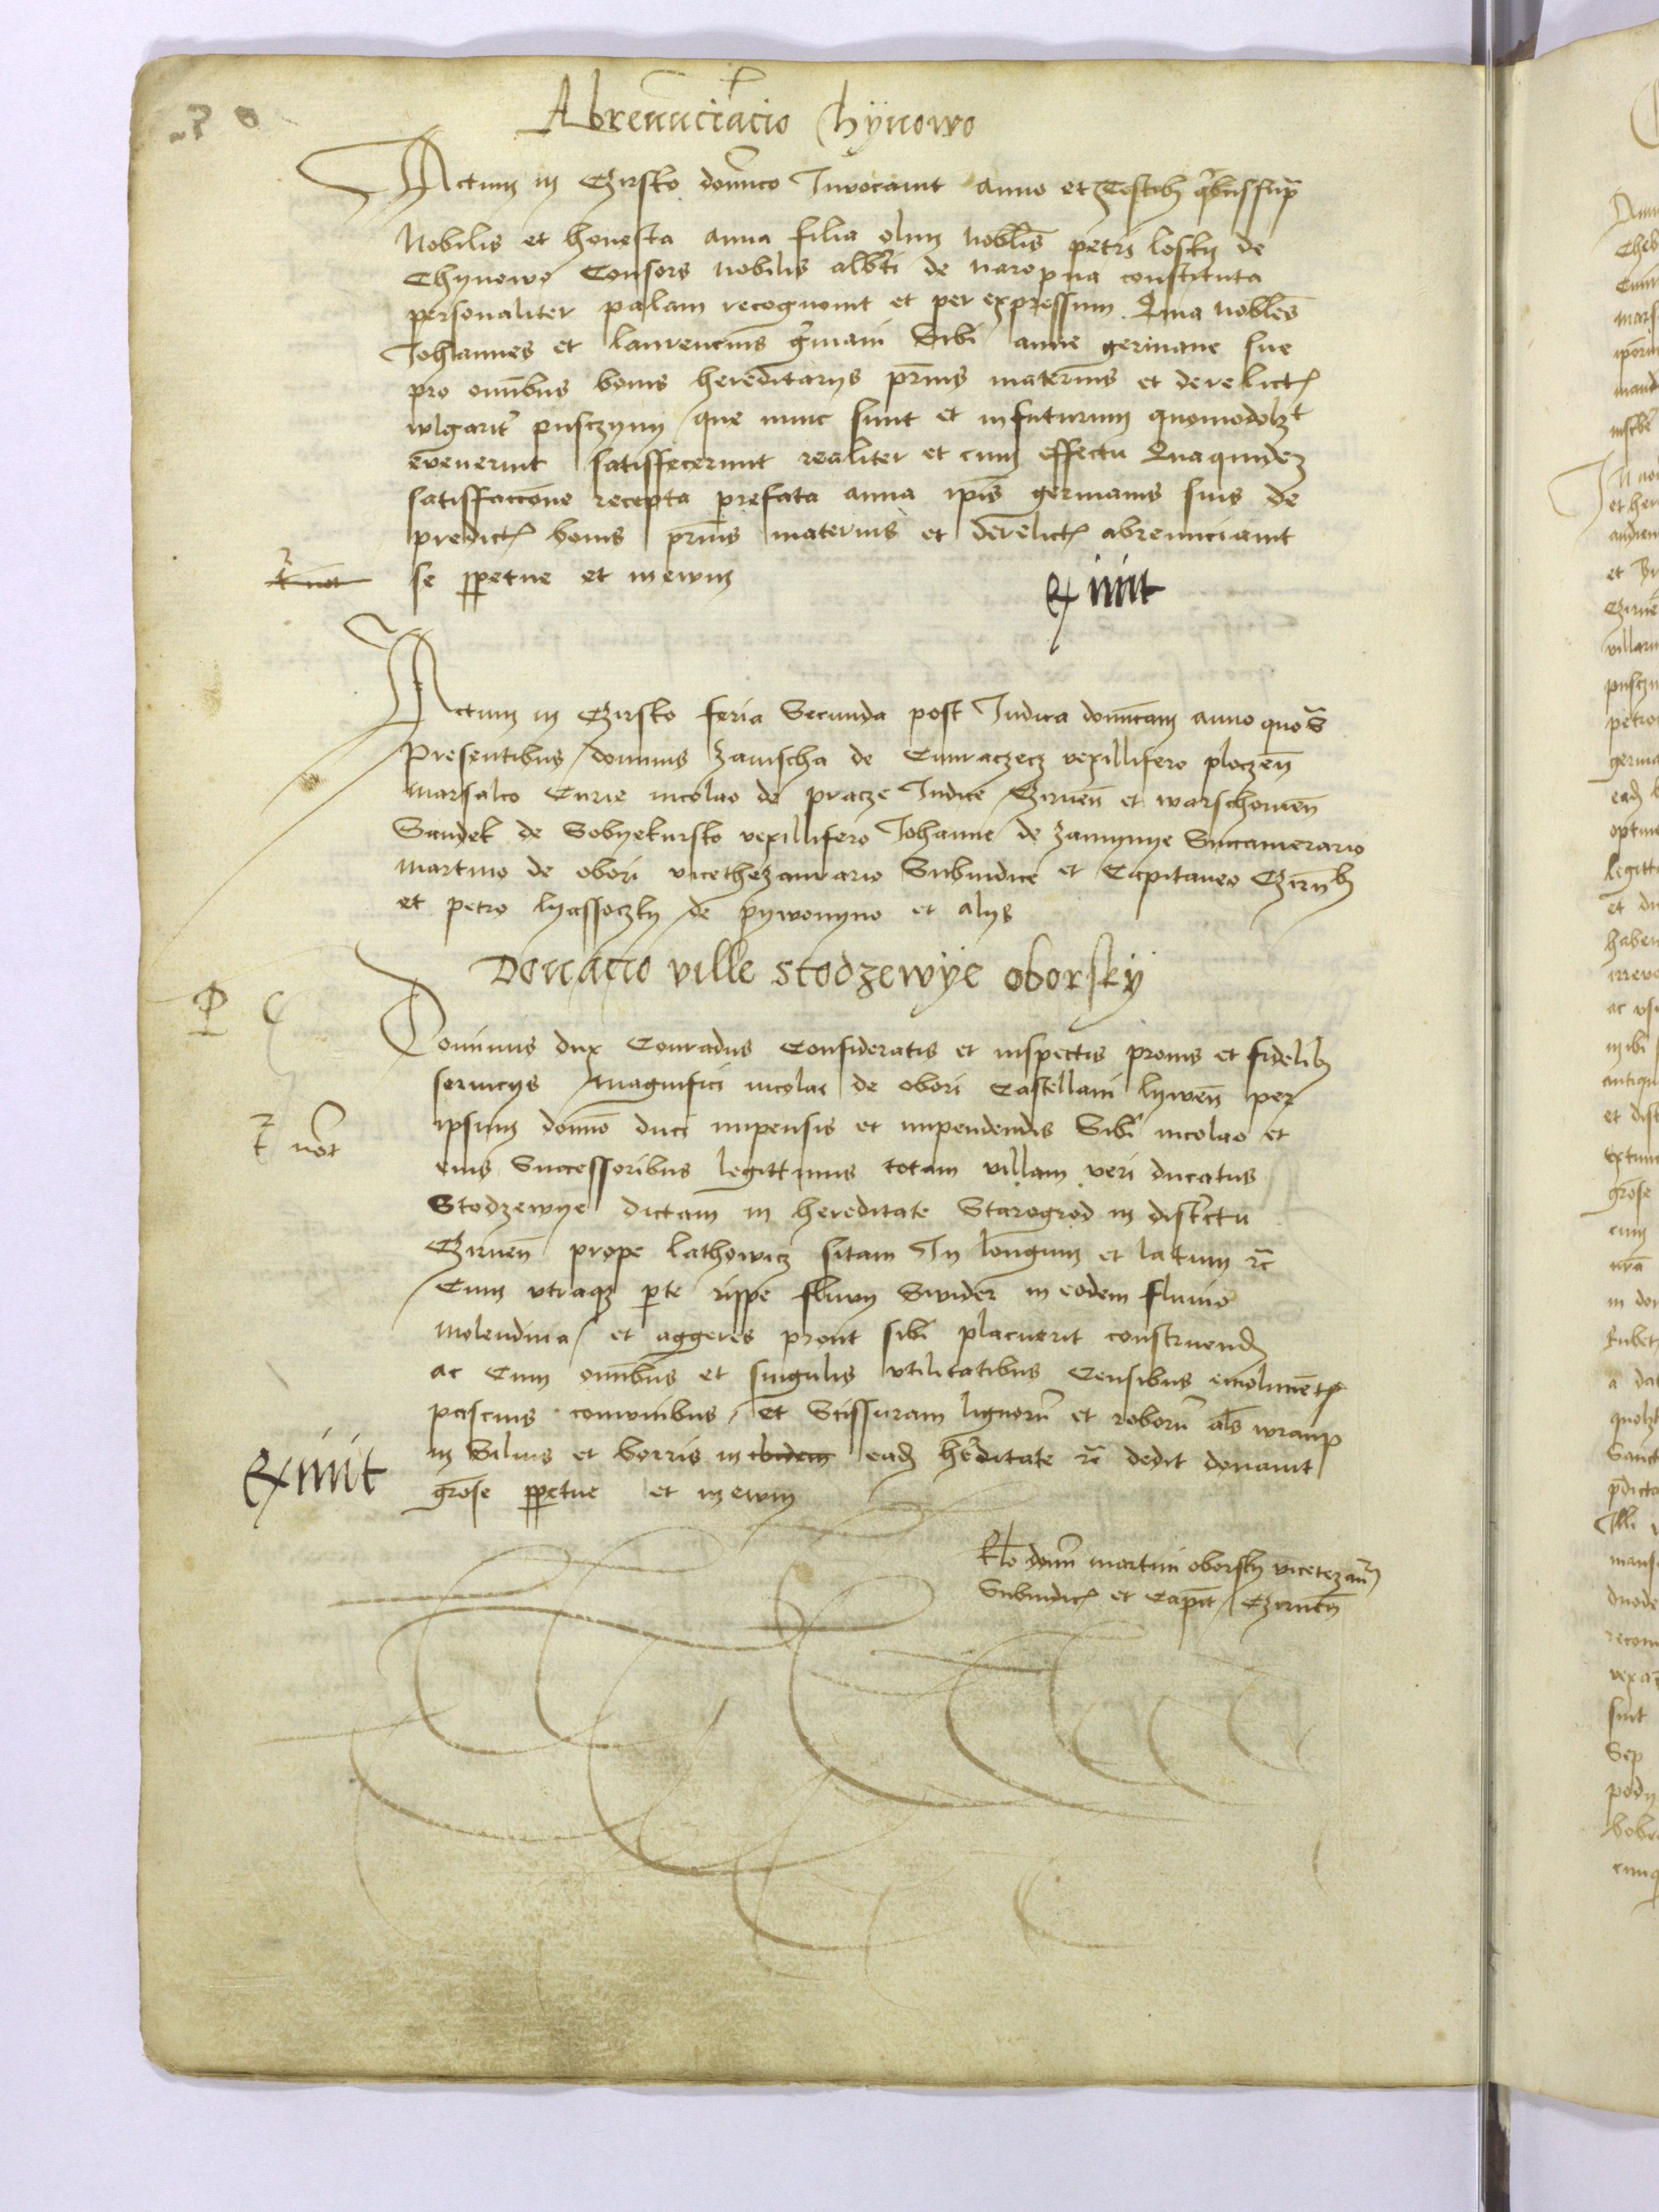 Abrenuncciacio Chÿnowo
Actum in Czirsko domīco Invocavit anno et Testibȝ qͥbus supͣ
Nobilis et honesta anna filia olim nobłis petri losky de
Chynowo Consors nobilis alb̄ti de naropna constituta
personaliter palam recognovit et per expressum Quia nobłes
Johannes et laurencius ḡmani Sibi anne germane sue
pro om̄ibus bonis hereditarijs pr̄nis maternis et derelict
wlgarit pusczyny que nunc sunt et in futurum quomodolȝt
evenerint satisfecerunt realiter et cum effectu Quaquideȝ
satisfaccōne recepta prefata anna ip̄is germanis suis de
predict bonis pr̄nis maternis et derelict abrenunciavit
se ꝑpetue et in ewm
Exivit
Actum in Czirsko feria Secunda post Iudica domīcam anno quo s̄
Presentibus dominis Zamscha de vexillifero ploczen̄
Marsalco Curie nicolao de pracze Iudice Czirnen̄ et warschovien̄
Sandek de Sobyekursko vexillifero Johanne de Zamynye Succamerario
Martino de obori vicethezaurario Subiudice et Capitaneo Czirnen̄
et petro lyassoczky de pywonyno et alys
Donacio ville stodzewÿe oborskÿ
Dominus dux Conradus Consideratis et inspectis pronis et fidelibȝ
servicys Magnifici nicolai de obori Castellani lywen̄ per
t̄ not ipsum domīo duci impensis et impendendis Sibi nicolao et
eius Successoribus legittimis totam villam veri ducatus
Stodzewye dictam in hereditate Starogrod in distr̄ctu
Czirnen̄ prope lathowicz sitam In longum et latum rc̄
Cum utraqȝ ꝑte rippe fluvy Swider in eodem fluvio
Molendina et aggeres prout sibi placuerit construend
ac Cum om̄ibus et singulis utilitatibus Censibus emolimēt
pascuis comunibus et Scissuram lignorū et roborū als wramp
in Silvis et borris in ibidem ead her̄ditate rc̄ dedit donavit
Exivit grōse ꝑpetue et in ewm
Rło domī martini oborsky vicetezaur̄
Subiudic et Capit Czirnen̄